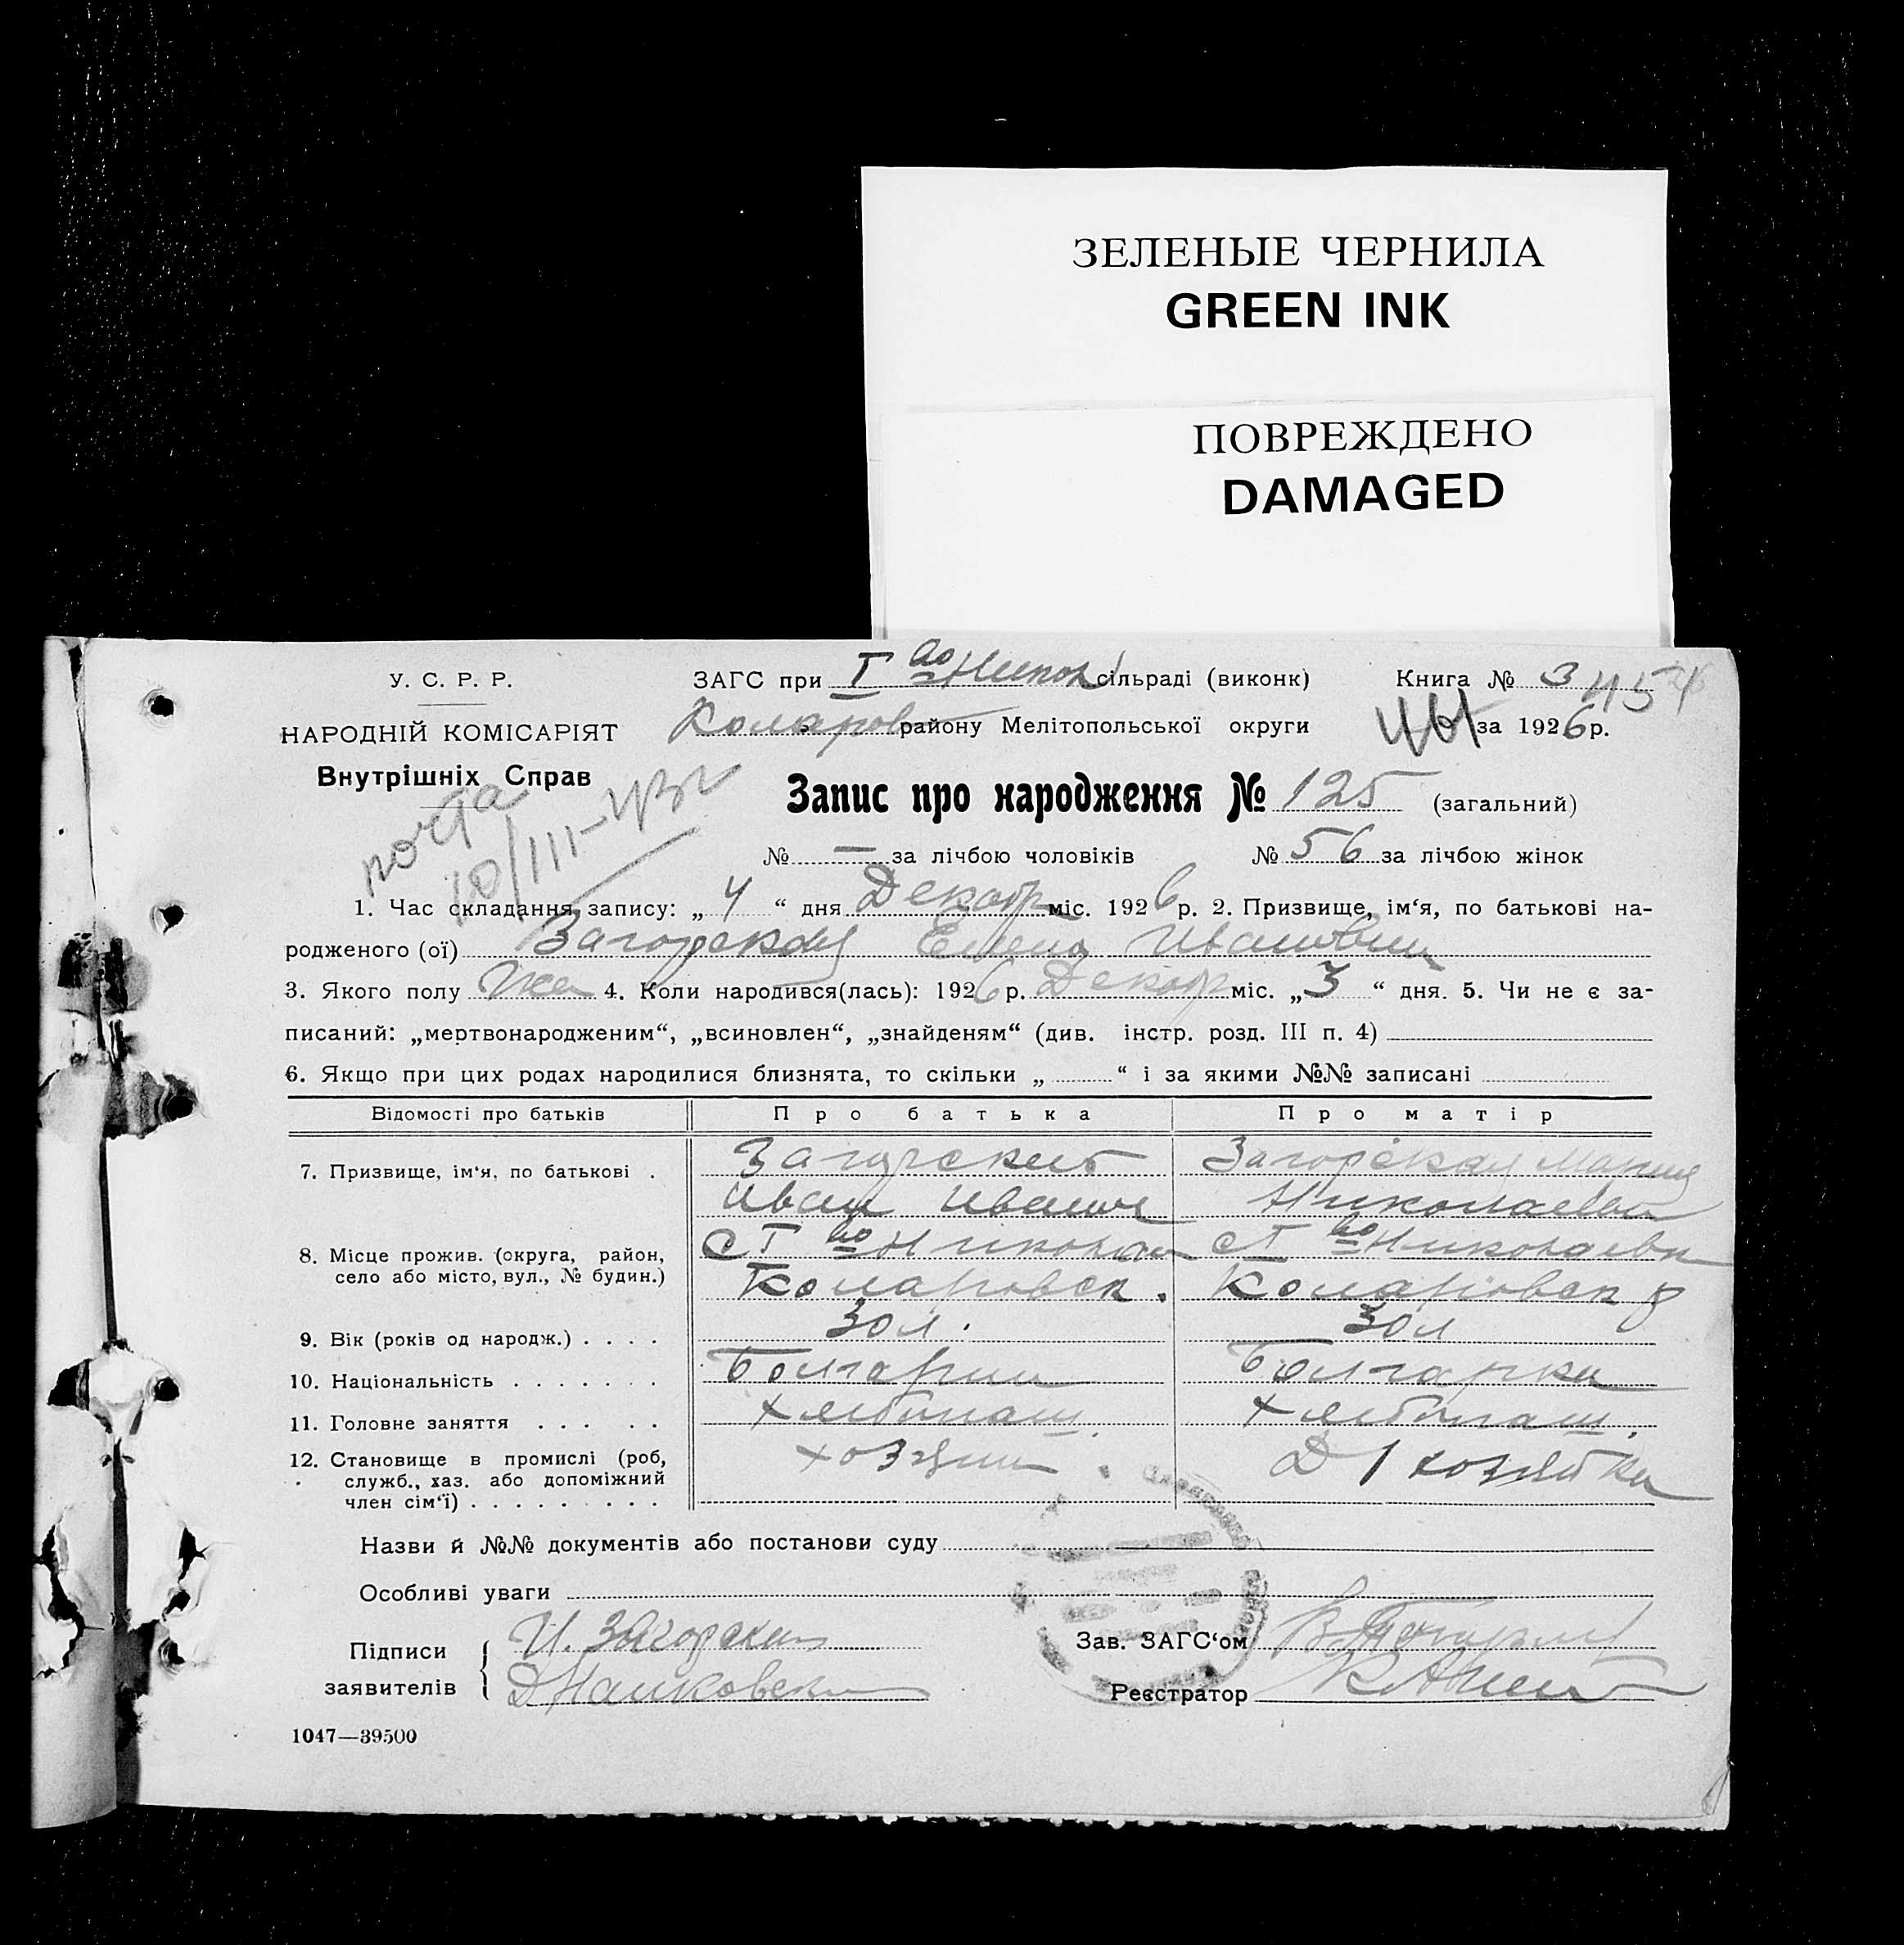 ЗЕЛЕНЫЕ ЧЕРНИЛА
GREEN INK
ПОВРЕЖДЕНО
DAMAGED
У. С. Р. Р.
НАРОДНІЙ КОМІСАРІЯТ
Внутрішніх Справ
почта
10/III-
ЗАГС при I во Никол сільраді (виконк)
Коларов району Мелітопольської округи
Книга № 3
за 1926 р.
Запис про народження № 125 (загальний)
№ — за лічбою чоловіків № 56 за лічбою жінок
1. Час складання запису: „ 4 “ дня Декабр міс. 1926 р. 2. Призвище, ім‘я, по батькові на-
родженого (ої) Загорская Елена Ивановна
3. Якого полу Жен 4. Коли народився(лась): 1926 р. Декабр міс. „ 3 “ дня. 5. Чи не є за-
писаний: „мертвонародженим“, „всиновлен“, „знайденям“ (див. інстр. розд. III п. 4)
6. Якщо при цих родах народилися близнята, то скільки „ “ і за якими №№ записані
Відомості про батьків Про батька Про матір
7. Призвище, ім‘я, по батькові . Загорский Загорская Мария
Иван Иванов Николаевн
8. Місце прожив. (округа, район, с I во Николаев с I во Николаевк
село або місто, вул., № будин.) Коларовск. Коларовск р
9. Вік (років од народж.) . . . . 30 л. 30 л
10. Національність . . . . . . . Болгарин Болгарка
11. Головне заняття . . . . . Хлебопаш. Хлебопаш.
12. Становище в промислі (роб, хозяин. Д/хозяйка
служб., хаз. або допоміжний
член сім‘ї) . . . . . . . . .
Назви й №№ документів або постанови суду
Особливі уваги
Підписи И. Загорский Зав. ЗАГС‘ом
заявителів Реєстратор
1047—39500